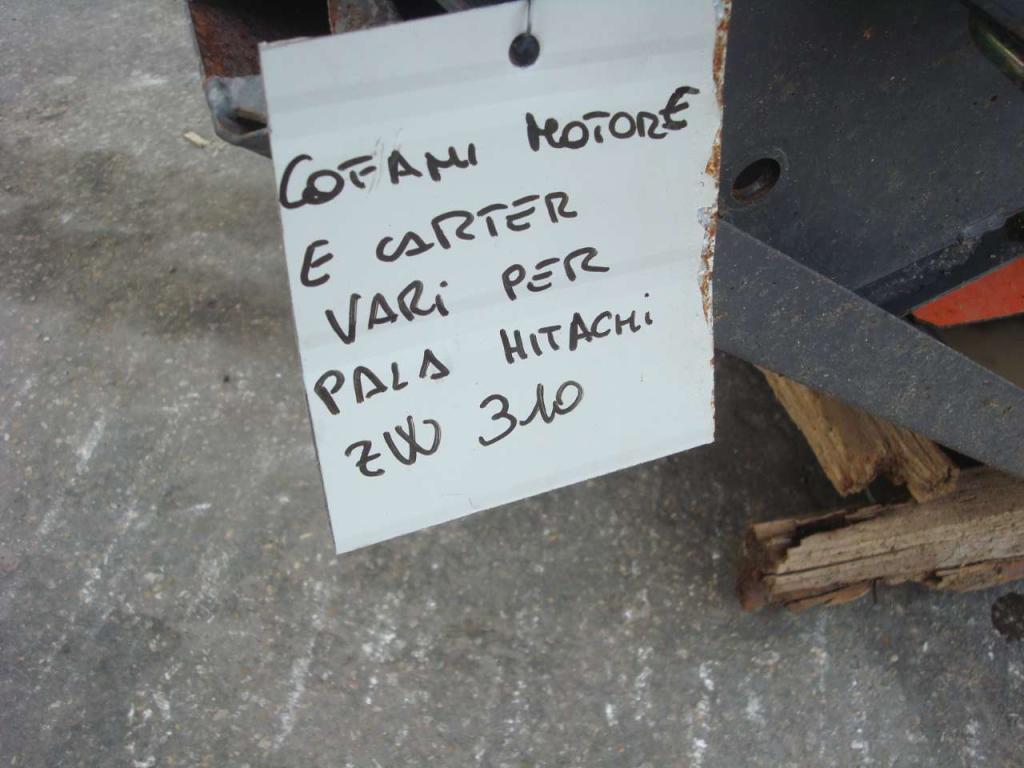 COFANI MOTORE
E CARTER
VARi PER
PALA HITACHi
ZW 310